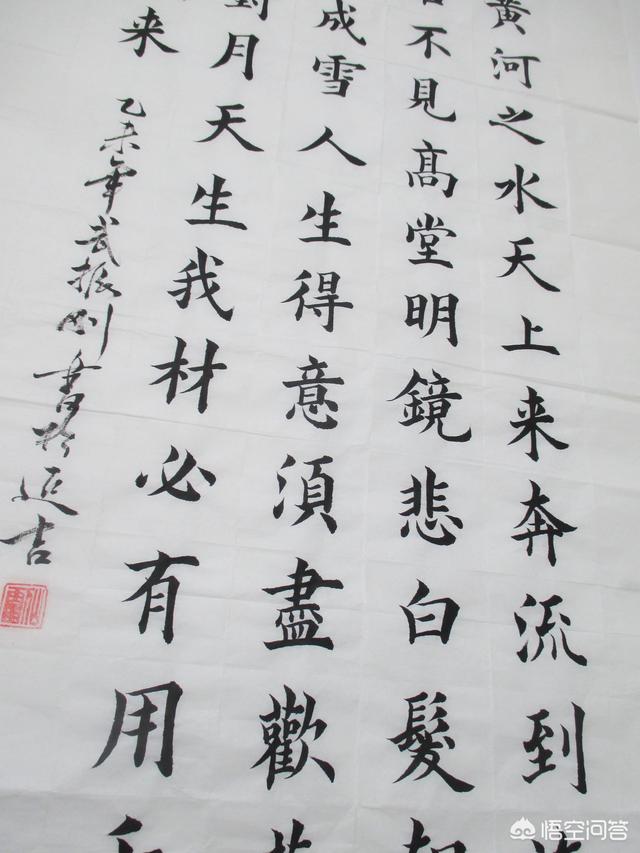 黄河之水天上来奔流到
不見髙堂明鏡悲白髮
成雪人生得意須盡歡
對月天生我材必有用
来
乙未年武振刚書於延吉
悟空问答